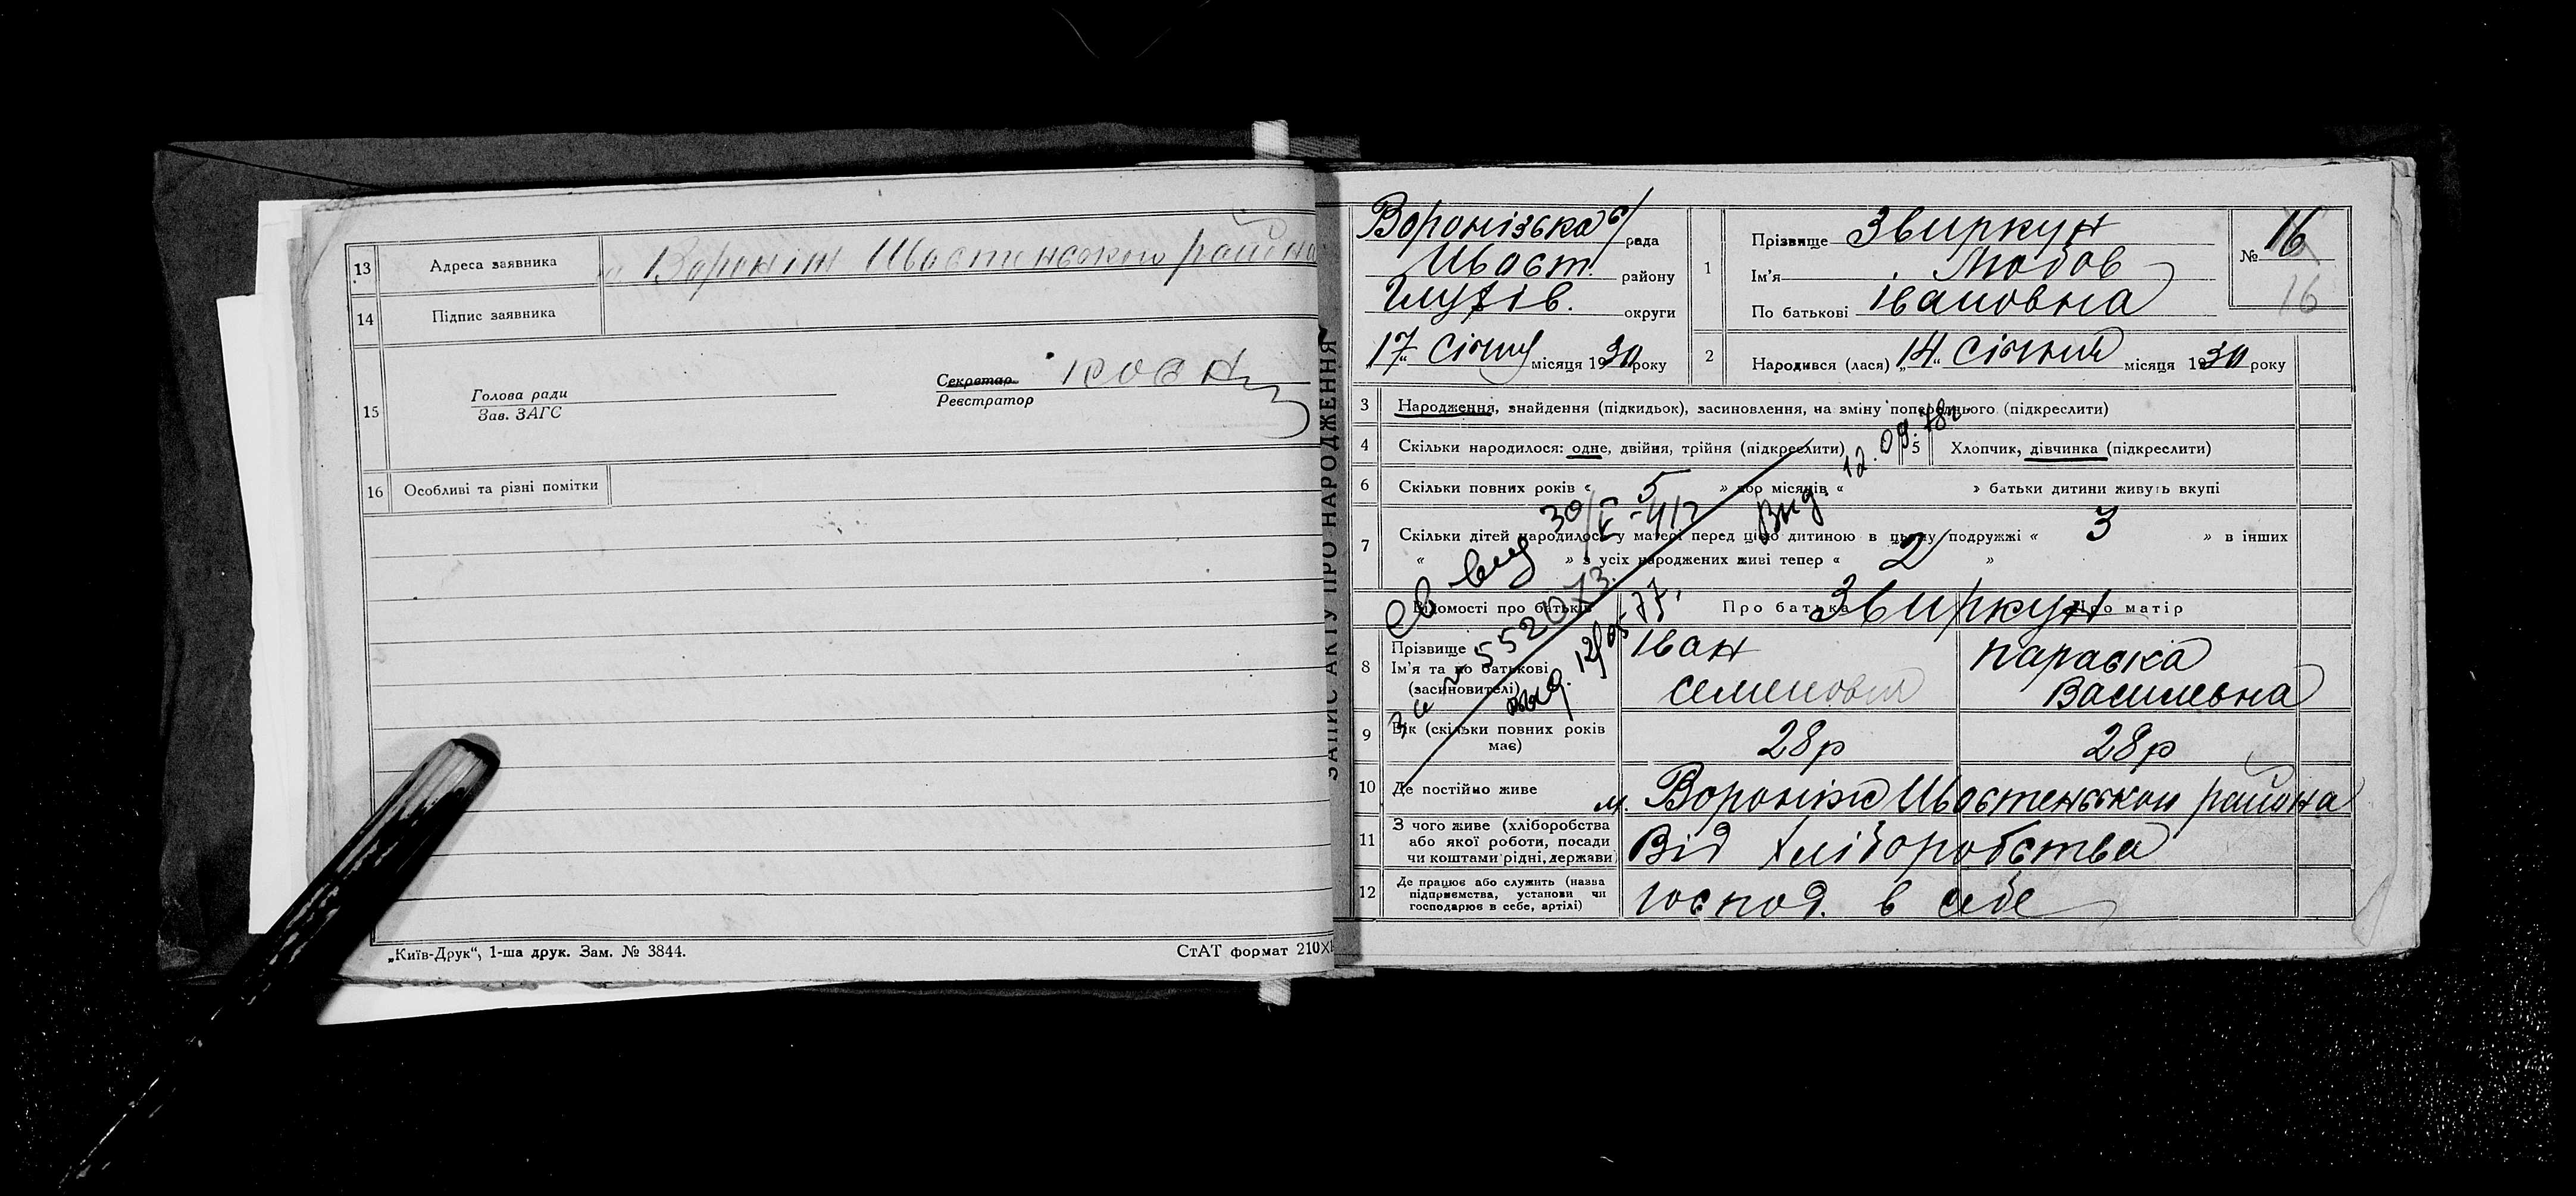 13 Адреса заявника м Вороніж Шостенского района
14 Підпис заявника
15 Голова ради
Зав. ЗАГС
Секретар
Реєстратор
16 Особливі та різні помітки
„Київ-Друк“, 1-ша друк. Зам. № 3844.
СтАТ формат 210×
ЗАПИС АКТУ ПРО НАРОДЖЕННЯ
Воронізька с/рада
Шост. району
Глухів. округи
„17“ Січня місяця 1930 року
1 Прізвище Звиркун
Ім'я Любов
По батькові Івановна
№ 16
16
2 Народився (лася) „14“ Січния місяця 1930 року
3 Народження, знайдення (підкидьок), засиновлення, на зміну попереднього (підкреслити)
4 Скільки народилося: одне, двійня, трійня (підкреслити)
5 Хлопчик, дівчинка (підкреслити)
6 Скільки повних років « 5 » або місяців « » батьки дитини живуть вкупі
7 Скільки дітей народилось у матері перед цією дитиною в цьому подружжі « 3 » в інших
« » з усіх народжених живі тепер « 2 »
Вид. 12.09.78г.
552073
выд. 12/05-77.
Відомості про батьків Про батька Про матір
Звиркун
8 Прізвище
Ім'я та по батькові
(засиновителі)
Іван
Семенович
Параска
Василевна
9 Вік (скільки повних років має) 28р 28р
10 Де постійно живе м. Вороніж Шостенского района
11 З чого живе (хліборобства
або якої роботи, посади
чи коштами рідні, держави)
Від хліборобства
12 Де працює або служить (назва
підприємства, установи чи
господарює в себе, артілі)
господ. в себе